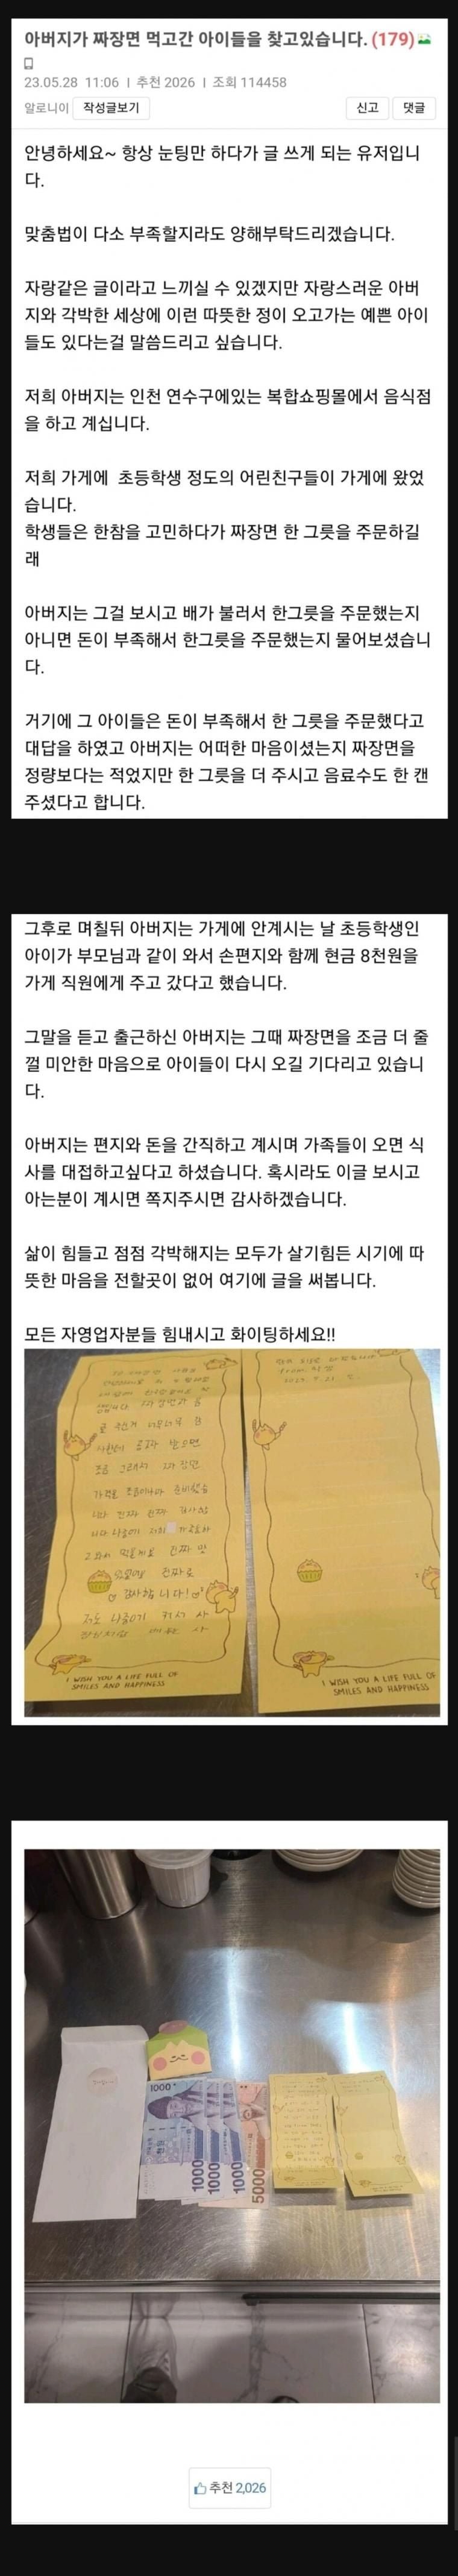 아버지가 짜장면 먹고간 아이들을 찾고있습니다. (179)
23.05.28 11:06 | 추천 2026 | 조회 114458
알로니이 작성글보기 신고 댓글
안녕하세요~ 항상 눈팅만 하다가 글 쓰게 되는 유저입니
다.
맞춤법이 다소 부족할지라도 양해부탁드리겠습니다.
자랑같은 글이라고 느끼실 수 있겠지만 자랑스러운 아버
지와 각박한 세상에 이런 따뜻한 정이 오고가는 예쁜 아이
들도 있다는걸 말씀드리고 싶습니다.
저희 아버지는 인천 연수구에있는 복합쇼핑몰에서 음식점
을 하고 계십니다.
저희 가게에 초등학생 정도의 어린친구들이 가게에 왔었
습니다.
학생들은 한참을 고민하다가 짜장면 한 그릇을 주문하길
래
아버지는 그걸 보시고 배가 불러서 한그릇을 주문했는지
아니면 돈이 부족해서 한그릇을 주문했는지 물어보셨습니
다.
거기에 그 아이들은 돈이 부족해서 한 그릇을 주문했다고
대답을 하였고 아버지는 어떠한 마음이셨는지 짜장면을
정량보다는 적었지만 한 그릇을 더 주시고 음료수도 한 캔
주셨다고 합니다.
그후로 며칠뒤 아버지는 가게에 안계시는 날 초등학생인
아이가 부모님과 같이 와서 손편지와 함께 현금 8천원을
가게 직원에게 주고 갔다고 했습니다.
그말을 듣고 출근하신 아버지는 그때 짜장면을 조금 더 줄
껄 미안한 마음으로 아이들이 다시 오길 기다리고 있습니
다.
아버지는 편지와 돈을 간직하고 계시며 가족들이 오면 식
사를 대접하고싶다고 하셨습니다. 혹시라도 이글 보시고
아는분이 계시면 쪽지주시면 감사하겠습니다.
삶이 힘들고 점점 각박해지는 모두가 살기힘든 시기에 따
뜻한 마음을 전할곳이 없어 여기에 글을 써봅니다.
모든 자영업자분들 힘내시고 화이팅하세요!!
진짜로
감사합니다!
저도 나중에 커서 사
I WISH YOU A LIFE FULL OF
SMILES AND HAPPINESS
I WISH YOU A LIFE FULL OF
SMILES AND HAPPINESS
1000
1000
1000
1000
5000
추천 2,026